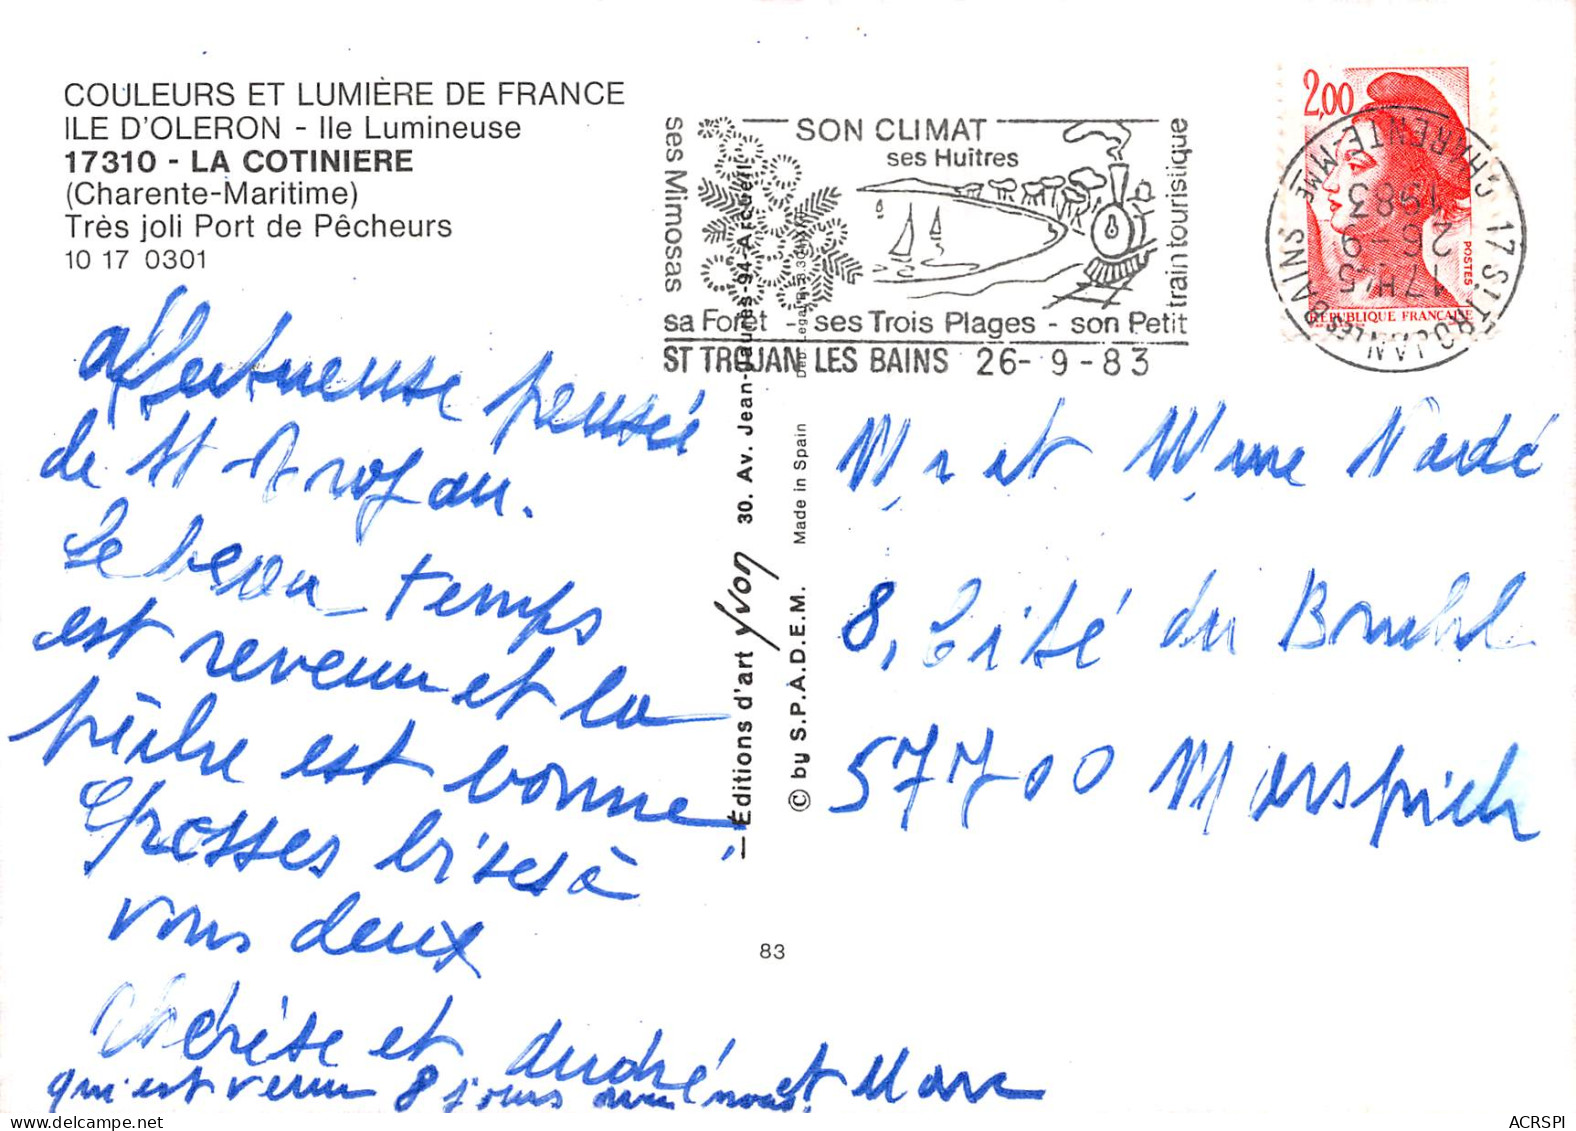 COULEURS ET LUMIÈRE DE FRANCE
ILE D'OLERON - Ile Lumineuse
17310 - LA COTINIERE
(Charente-Maritime)
Très joli Port de Pêcheurs
10 17 0301
affectueuse pensée
de St Trojan.
Le beau temps
est revenu et la
pêche est bonne
Grosses bises à
vous deux
Thérèse et André et Marc
qui est venu 8 jours avec nous.
ses Mimosas
SON CLIMAT
ses Huîtres
train touristique
sa Forêt - ses Trois Plages - son Petit
ST TROJAN LES BAINS 26-9-83
— Éditions d'art Yvon 30. Av. Jean-Jaurès-94-Arcueil
© by S.P.A.D.E.M. Made in Spain
83
2,00
POSTES
RÉPUBLIQUE FRANÇAISE
17 ST TROJAN LES BAINS
CHARENTE-MME
17H45
26-9
1983
Mr et Mme Nardé
8, Cité du Bruhl
57700 Marspich
ACRSPI